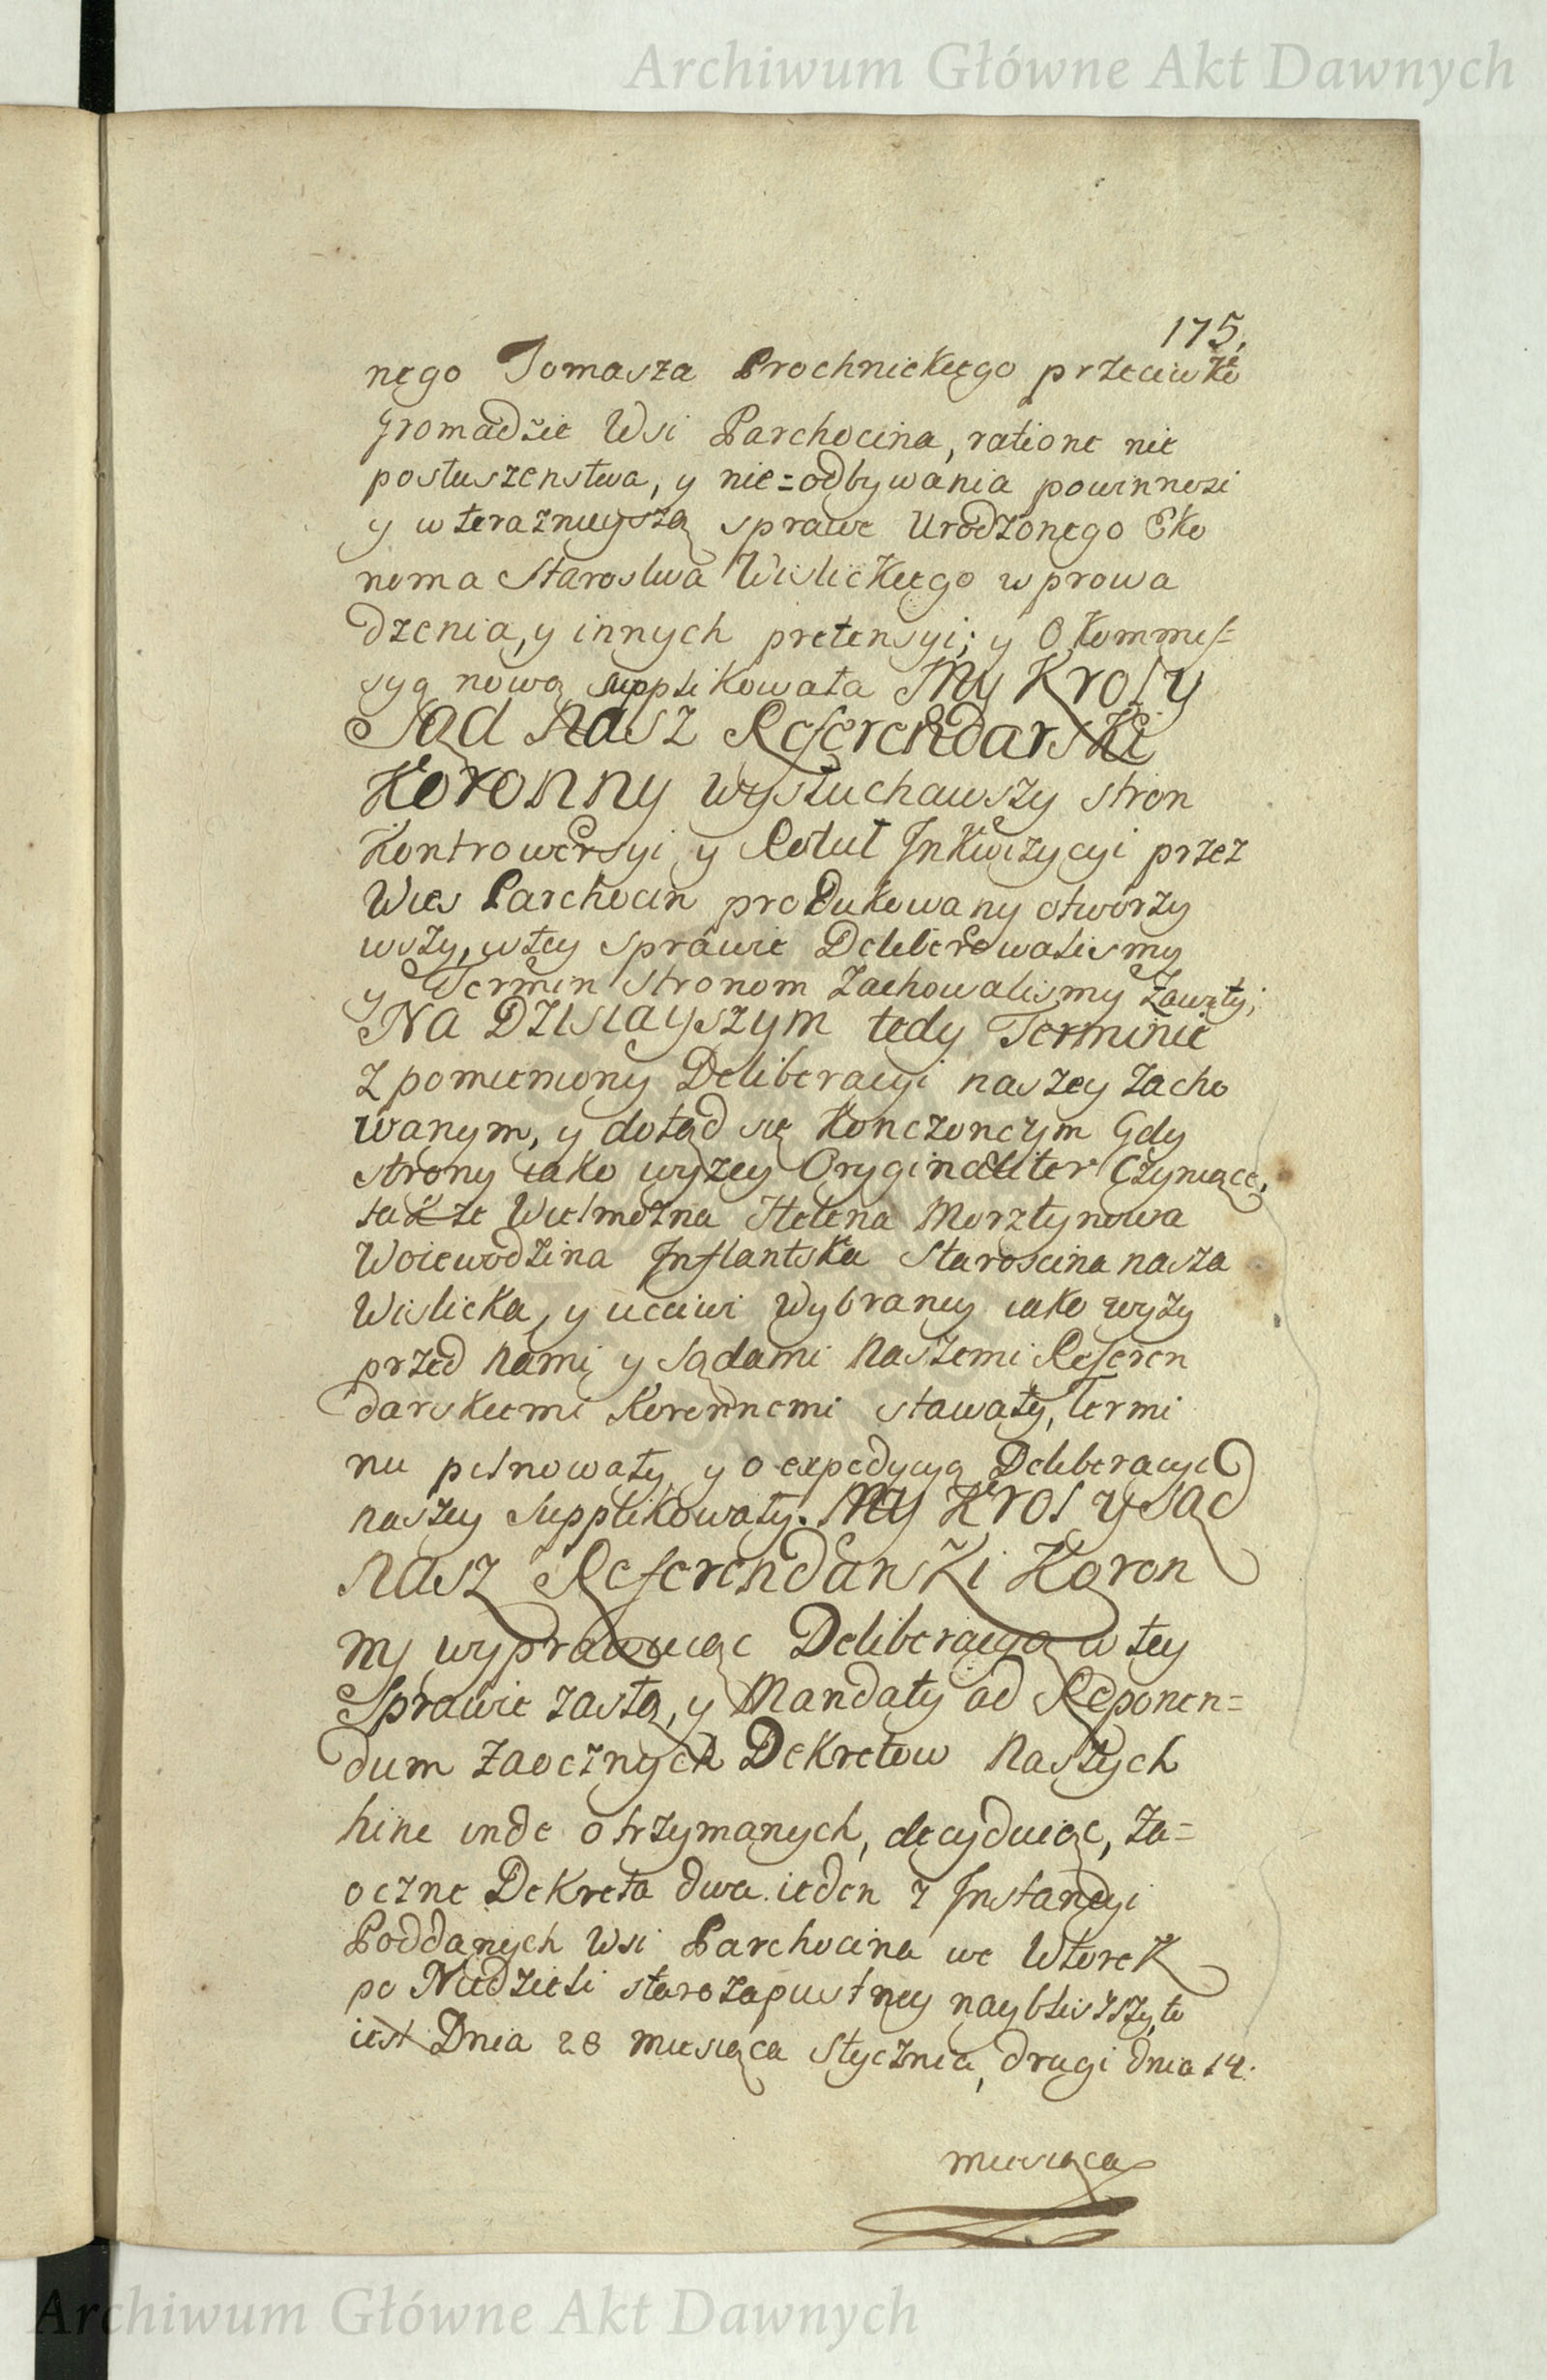 Archiwum Główne Akt Dawnych
175.
nego Tomasza Prochnickiego przeciwko
gromadzie Wsi Parchocina, ratione nie
posłuszenstwa, y nie=odbywania powinnosi
y w terazniejszą sprawe Urodzonego Eko
noma Starostwa Wislickiego wprowa
dzenia, y innych pretensyi; y O kommis=
syą nową supplikowała My Krol y
Sąd Nasz Referendarski
Koronny wysłuchawszy stron
Kontrowersyi y Rotuł Inkwizycyi przez
Wies Parchocin produkowany otworzy
wszy, w tey sprawie Deliberowalismy
y Termin stronom zachowalismy zawity;
Na Dzisiayszym tedy Terminie
z pomieniony Deliberacyi naszey zacho
wanym, y dotąd się konczonczym Gdy
strony iako wyzey Oryginaliter Czyniące,
takze Wielmozna Helena Morztynowa
Woiewodzina Inflantska Staroscina nasza
Wislicka, y uczciwi Wybrancy iako wyzy
przed Nami y Sądami Naszemi Referen
darskiemi Koronnemi stawały, Termi
nu pilnowały, y o expedycyą Deliberacyi
naszey supplikowały. My Krol y Sąd
Nasz Referendarski Koron
ny wyprawuiąc Deliberacyą w tey
Sprawie zaszłą, y Mandaty ad Reponen=
dum Zaocznych Dekretow Naszych
hinc inde otrzymanych, decyduiąc, Za=
oczne Dekreta dwa ieden z Instancyi
Poddanych Wsi Parchocina we Wtorek
po Niedzieli starozapustney naybliszszy to
iest Dnia 28 miesiąca stycznia, drugi dnia 14.
miesiąca
Archiwum Główne Akt Dawnych